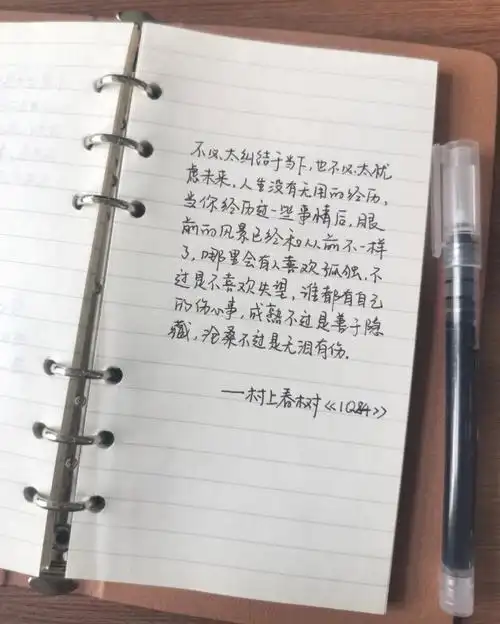 不必太纠结于当下，也不必太忧
虑未来，人生没有无用的经历，
当你经历过一些事情后，眼
前的风景已经和从前不一样
了，哪里会有人喜欢孤独，不
过是不喜欢失望，谁都有自己
的伤心事，成熟不过是善于隐
藏，沧桑不过是无泪有伤。
——村上春树《1Q84》